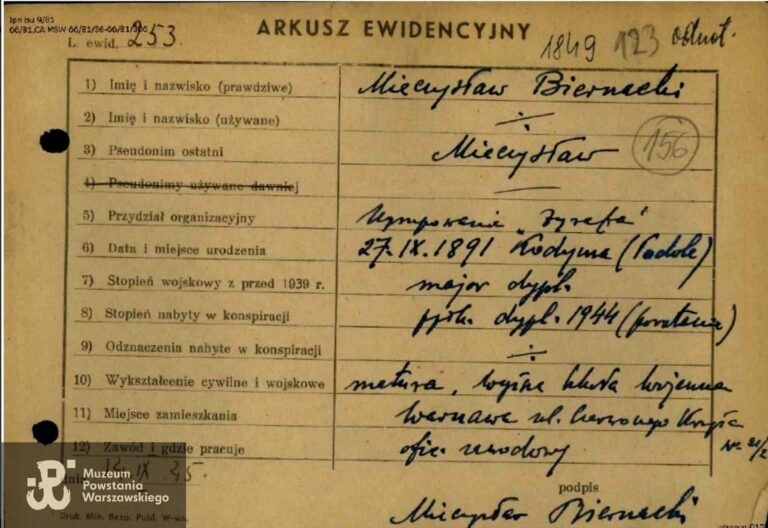 Ipn bu 9/81
66/81,CA MSW 66/81/36-66/81/306
ARKUSZ EWIDENCYJNY
L. ewid. 253.
1849 123 odnot.
1) Imię i nazwisko (prawdziwe) Mieczysław Biernacki
2) Imię i nazwisko (używane) ÷
3) Pseudonim ostatni Mieczysław 156
4) Pseudonimy używane dawniej —
5) Przydział organizacyjny Zgrupowanie „Żyrafa"
6) Data i miejsce urodzenia 27.IX.1891 Kodyma (Podole)
7) Stopień wojskowy z przed 1939 r. major dypl.
8) Stopień nabyty w konspiracji ppłk. dypl. 1944 (powstanie)
9) Odznaczenia nabyte w konspiracji ÷
10) Wykształcenie cywilne i wojskowe matura, wyższa szkoła wojenna
11) Miejsce zamieszkania Warszawa ul. Czerwonego Krzyża Nr. 21/2
12) Zawód i gdzie pracuje ofic. zawodowy
IX.45.
podpis
Mieczysław Biernacki
Druk. Min. Bezp. Publ. W-wa.
Muzeum
Powstania
Warszawskiego